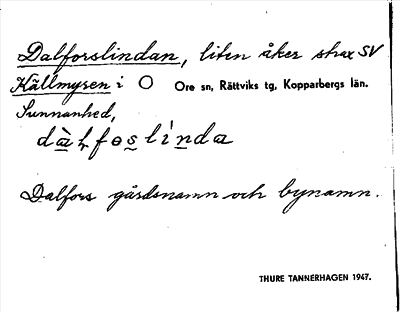 Dalforslindan, liten åker strax SV
Källmyren i O Ore sn, Rättviks tg, Kopparbergs län.
Sunnanhed,
Dalfors gårdsnamn och bynamn.
THURE TANNERHAGEN 1947.